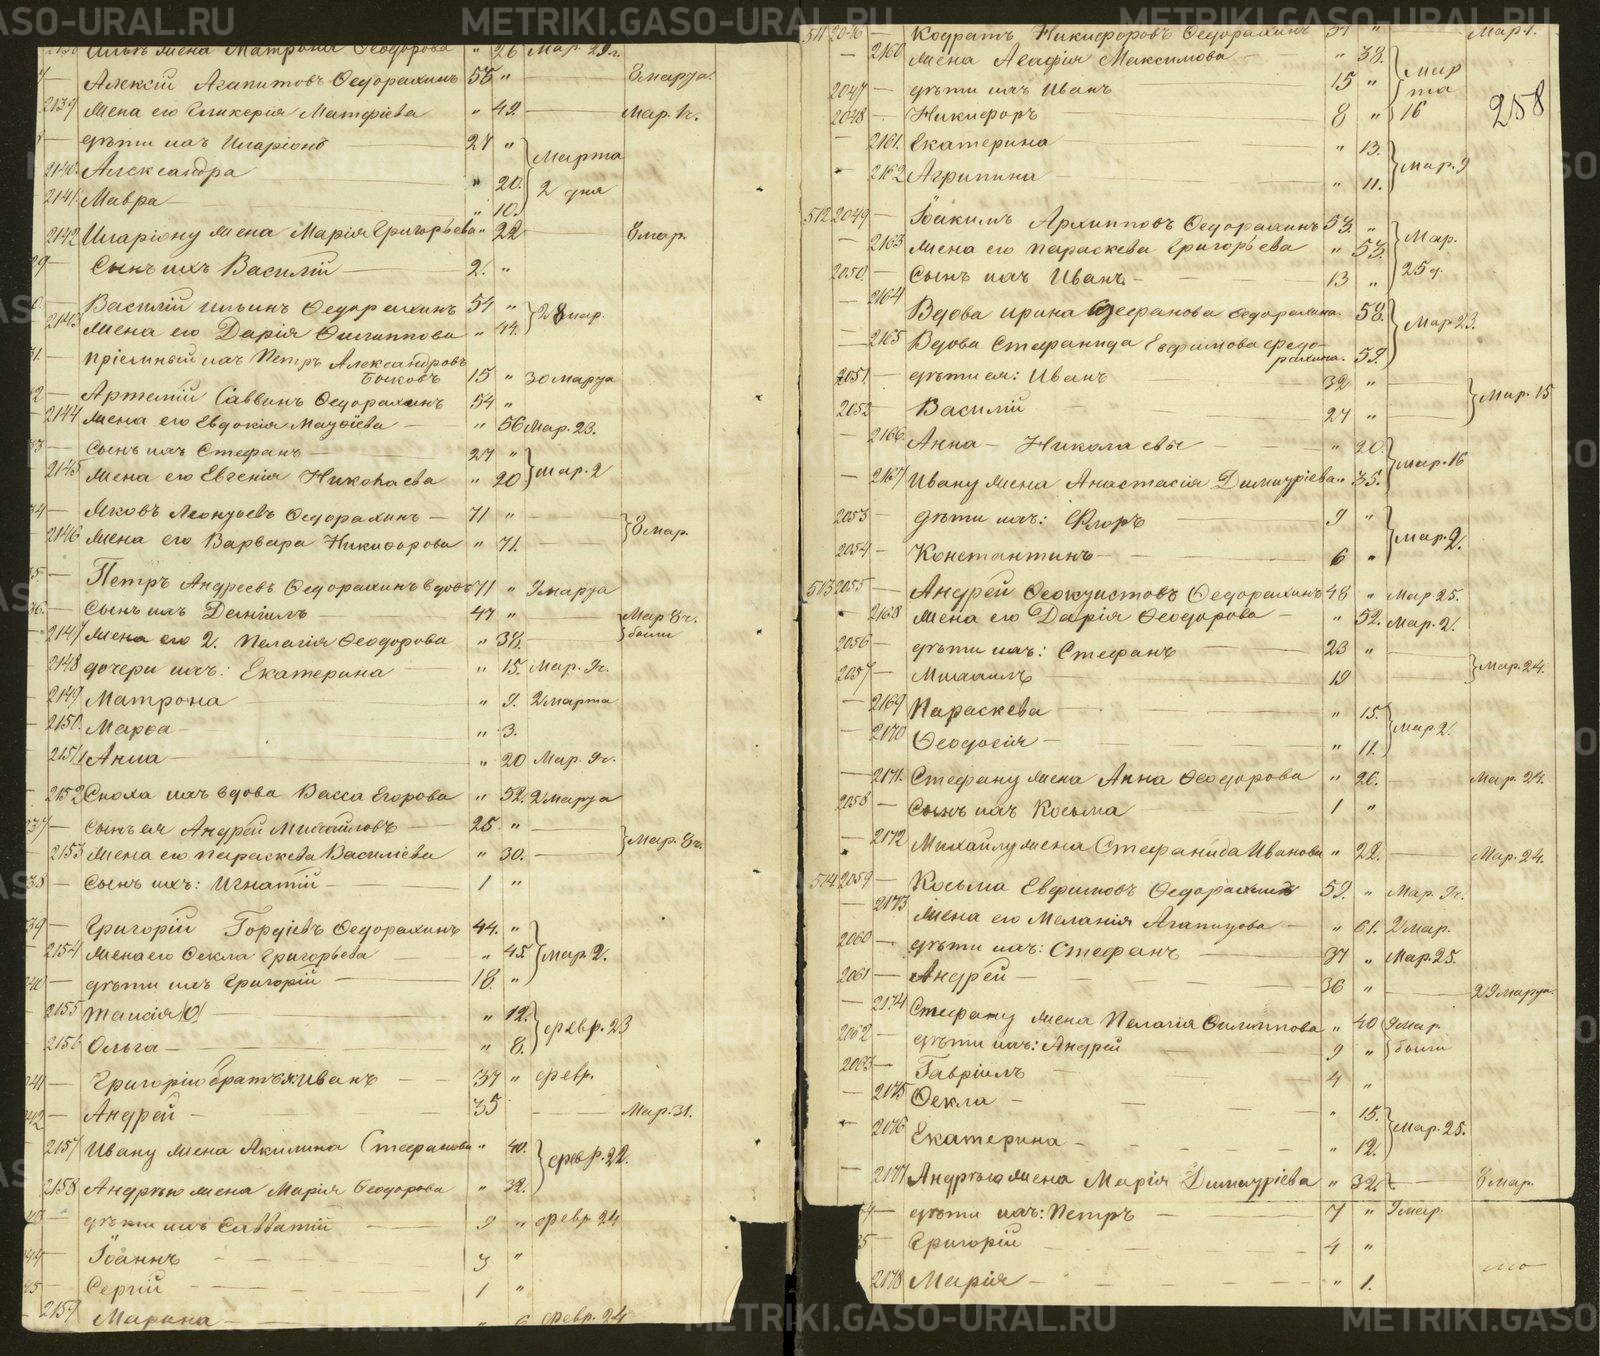 2138 Илья жена Матрона Ѳеодорова " 26 Мар. 29.
Алексій Агапитовъ Ѳедорахинъ 55 " — 8 марта.
2139 Жена его Гликерія Матфіева " 42. — Мар. 1 ч.
дѣти ихъ Иларіонъ 24 "
2140. Александра " 20. Марта
2141. Мавра " 10. 2 дня
2142 Иларіону жена Марія Григорьева " 22 — 8 мар.
29 — Сынъ ихъ Василій — 2. "
Василій Ильинъ Ѳедорахинъ 51 " 28 мар.
2143 Жена его Дарія Филиппова " 44.
31. — пріемный ихъ Петръ Александровъ
Бычковъ 15 " 30 марта
Артемій Саввинъ Ѳедорахинъ 54 "
2144 Жена его Евдокія Матѳіева — " 56 Мар. 23.
33 — Сынъ ихъ Стефанъ — 27 "
2145 Жена его Евгенія Николаева " 20 мар. 2
34 — Яковъ Леонтьевъ Ѳедорахинъ — 71 " — 8 мар.
2146 Жена его Варвара Никифорова " 71. —
35 — Петръ Андреевъ Ѳедорахинъ вдовъ 71 " 9 марта
36. — Сынъ ихъ Даніилъ — 47 " — Мар 8 ч.
2147 Жена его 2. Пелагія Ѳеодорова " 38. были
2148 дочери ихъ: Екатерина — " 15. Мар. 9 ч.
2149 Матрона — " 9. 2 марта
2150. Марѳа — " 3.
2151 Анна — " 20 Мар. 9 ч.
2152 Сноха ихъ вдова Васса Егорова " 52. 2 марта
37 — Сынъ ея Андрей Михайловъ — 25 " — Мар. 8 ч.
2153 Жена его Параскева Василіева " 30. —
38 — Сынъ ихъ: Игнатій — 1 "
39 — Григорій Гордіевъ Ѳедорахинъ 44. "
2154 Жена его Ѳекла Григорьева — " 45 мар. 2.
40 — дѣти ихъ Григорій — 18 "
2155 Таисія — " 12. февр. 23
2156 Ольга — " 8.
41 — Григорію братья Иванъ — 37 " февр.
42 — Андрей — 35 — Мар. 31.
2157 Ивану жена Акилина Стефанова " 40. февр. 22.
2158 Андрею жена Марія Ѳеодорова " 32.
43 — дѣти ихъ Савватій — 9 " февр 24
44 — Іоаннъ — 3 "
45 — Сергій — 1 "
2159 Марина — " 6 февр. 24
511 2046 — Кодратъ Никифоровъ Ѳедорахинъ 37 " — Мар. 1.
258
— 2160 Жена Агафія Максимова — " 38.
2047 — дѣти ихъ Иванъ 15 " Мар
та
2048 — Никифоръ — 8 " 16
— 2161. Екатерина — " 13. мар. 9
— 2162 Агрипина — " 11.
512 2049 — Іоакимъ Архипповъ Ѳедорахинъ 53. "
— 2163 Жена его Параскева Григорьева " 53. Мар.
2050 — Сынъ ихъ Иванъ — 13 " 25 д.
— 2164 Вдова Ирина Стефанова Ѳедорахина. 58. Мар. 23.
— 2165 Вдова Стефанида Евфимова Ѳедо-
рахина. 59.
2051. — дѣти ея: Иванъ — 32 " — Мар. 15
2052 — Василій — 27 " —
— 2166. Анна — Николаевы — " 20. Мар. 16
— 2167 Ивану жена Анастасія Димитріева " 35.
2053 — дѣти ихъ: Флоръ — 9 " Мар. 2.
2054 — Константинъ — 6 "
513 2055 — Андрей Ѳеоктистовъ Ѳедорахинъ 48 " Мар 25.
2168 Жена его Дарія Ѳеодорова — " 52. Мар. 2.
2056 — дѣти ихъ: Стефанъ — 23 " — Мар. 24.
2057 — Михаилъ — 19
— 2169 Параскева — " 15. Мар 2.
— 2170 Ѳеодосія — " 11.
— 2171. Стефану жена Анна Ѳеодорова " 26. — Мар. 24.
2058 — Сынъ ихъ Косьма — 1 "
— 2172 Михайлу жена Стефанида Иванова " 22. — Мар. 24.
514 2059 — Косьма Евфимовъ Ѳедорахинъ 59. " Мар. 9 ч.
— 2173 Жена его Меланія Агапитова — " 61. 2 мар.
2060 — дѣти ихъ: Стефанъ — 37 " Мар. 25.
2061 — Андрей — 36 " — 29 марта.
— 2174 Стефану жена Пелагія Филиппова " 40 9 мар.
2062 — дѣти ихъ: Андрей — 9 " были
2063 — Гавріилъ — 4 "
— 2175 Ѳекла — " 15. Мар. 25.
— 2176 Екатерина — " 12.
— 2177 Андрею жена Марія Димитріева " 32. — 8 мар.
64 — дѣти ихъ: Петръ — 7 " 9 мар
65 Григорій — 4 "
2178 Марія — " 1.